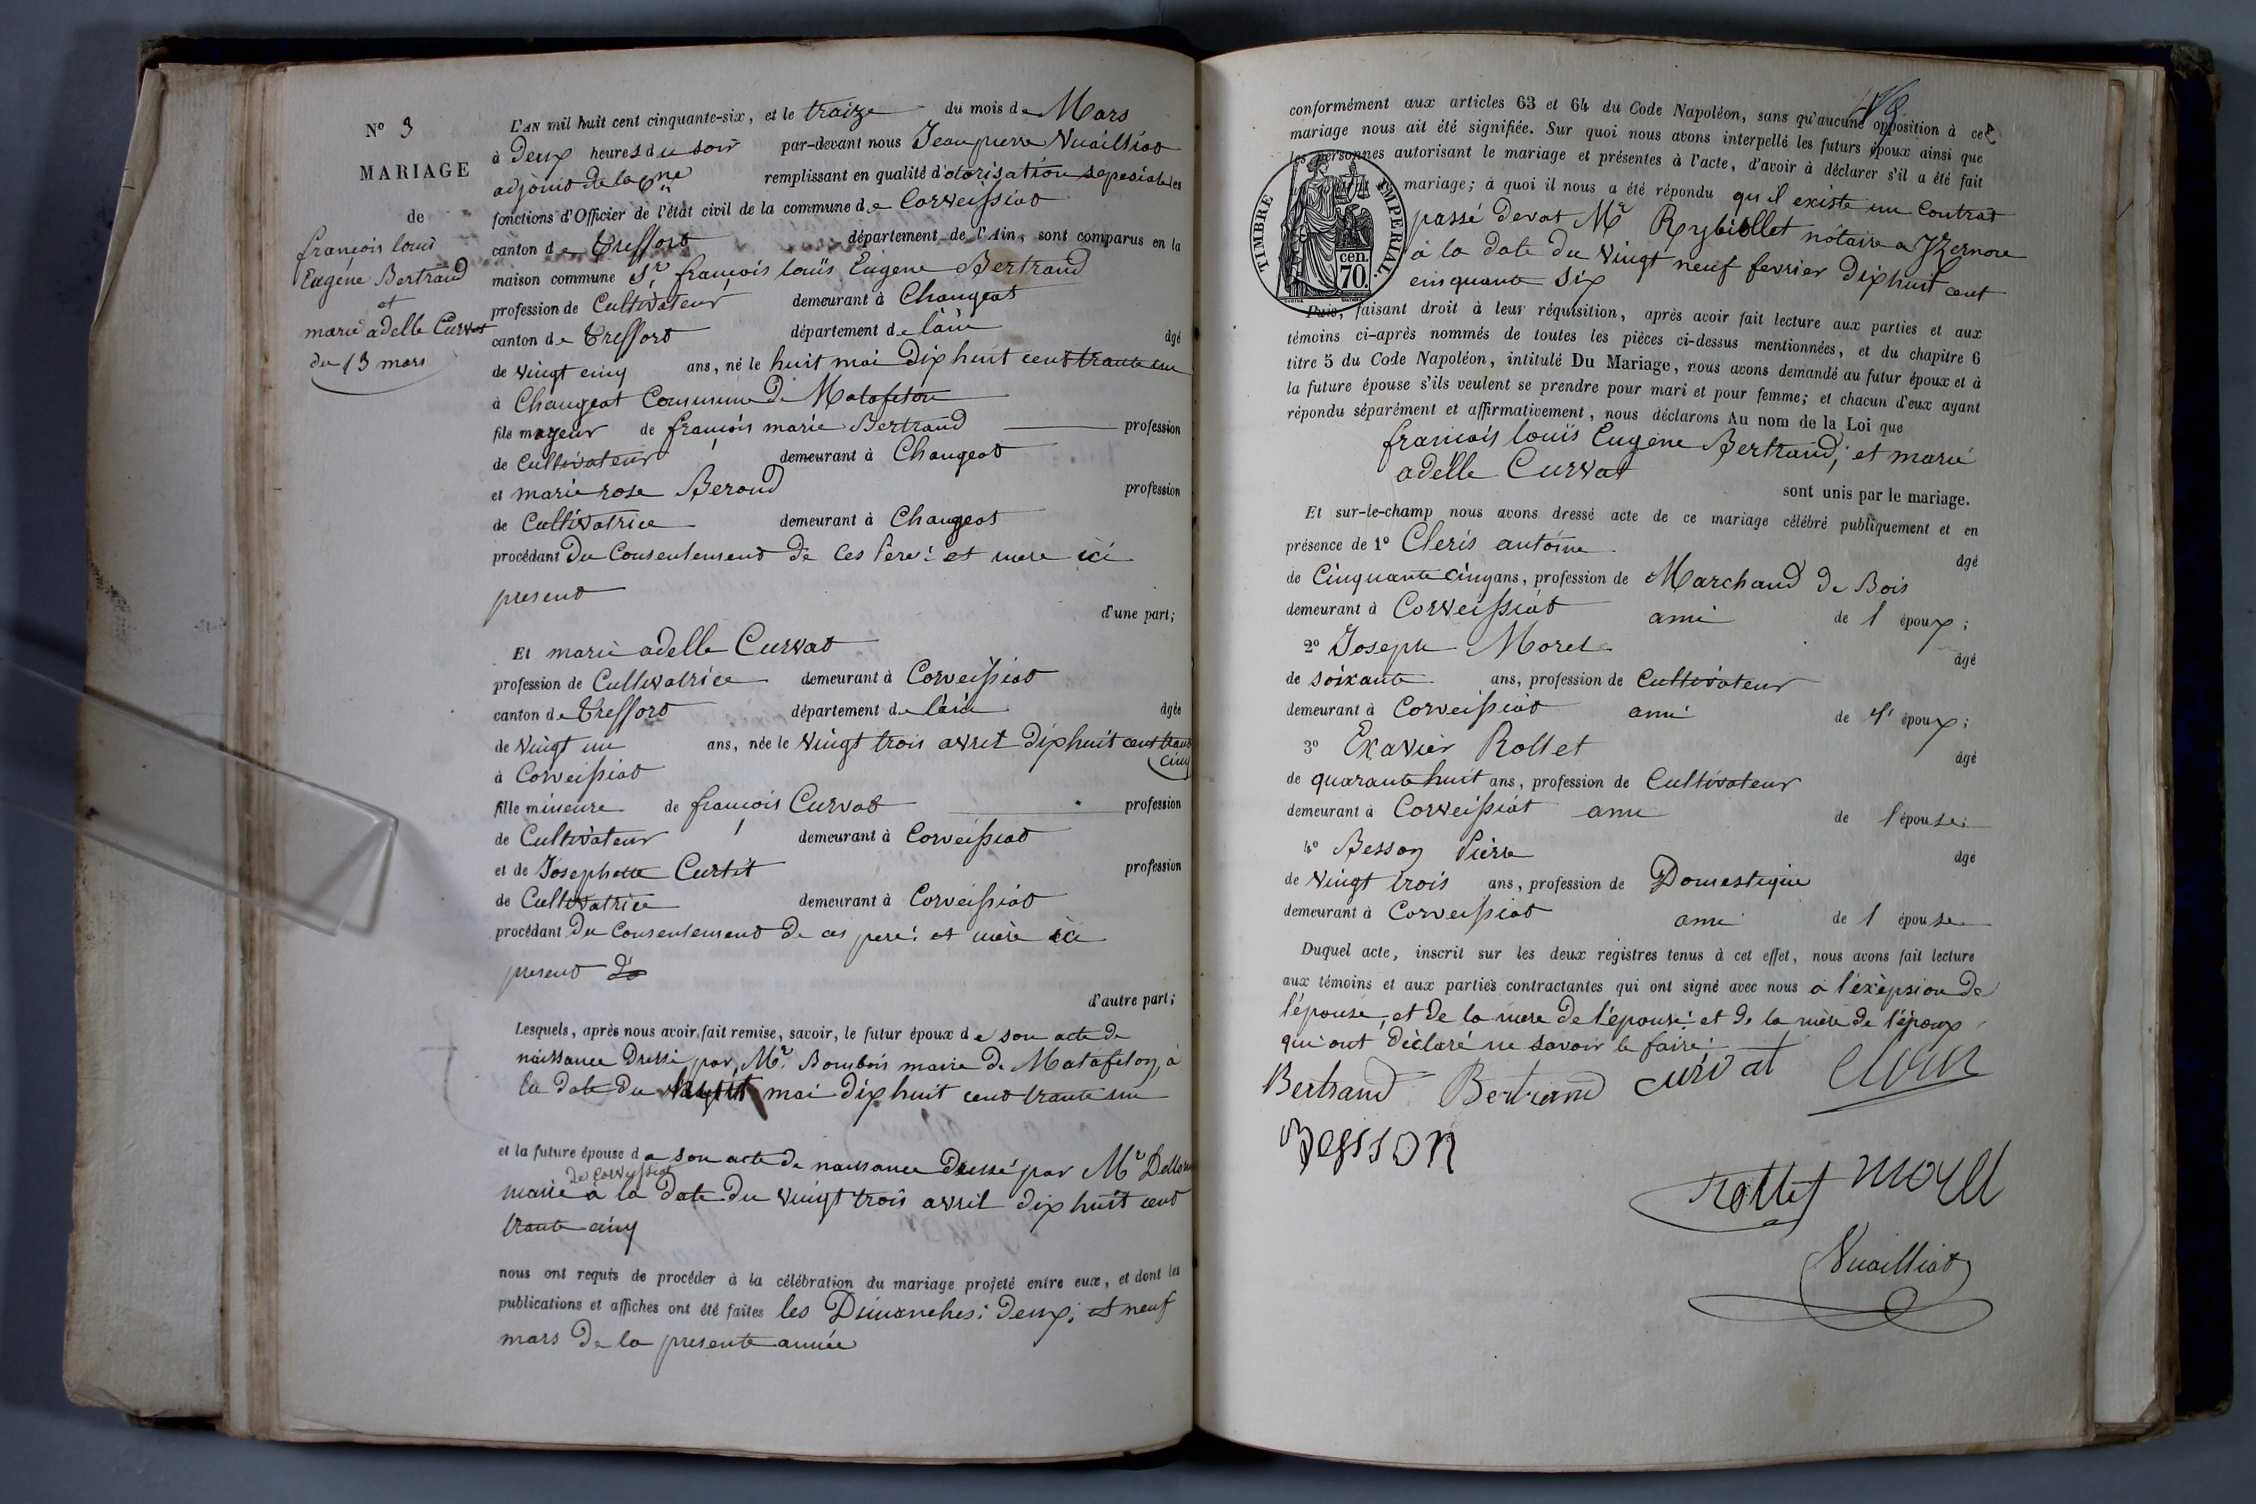 N° 3
MARIAGE
de
françois louis
Eugéne Bertrand
et
marie adelle Curvat
du 13 mars
L'AN mil huit cent cinquante-six, et le traize du mois de Mars
à Deux heures du soir par-devant nous Jean pierre Vuailliat
adjoint de la Cne remplissant en qualité d'otorisation les
fonctions d'Officier de l'état civil de la commune de Corveissiat
canton de Treffort département de l'Ain, sont comparus en la
maison commune Sr françois louis Eugene Bertrand
profession de Cultivateur demeurant à Changeat
canton de Treffort département de lain âgé
de vingt cinq ans, né le huit mai dix huit cent trante un
à Changeat Commune De Matafelon
fils mageur de françois marie Bertrand profession
de Cultivateur demeurant à Changeat
et marie rose Beroud profession
de Cultivatrice demeurant à Changeat
procédant Du Consentement de Ces Père : et mere ici
present
d'une part;
Et marie adelle Curvat
profession de Cultivatrice demeurant à Corveissiat
canton de Treffort département de lain âgée
de vingt un ans, née le vingt trois avril dix huit cent trante
cinq
à Corveissiat
fille mineure de françois Curvat profession
de Cultivateur demeurant à Corveissiat
et de Josephette Curtit profession
de Cultivatrice demeurant à Corveissiat
procédant du Consentement de ces pere : et mère ici
present
d'autre part;
Lesquels, après nous avoir fait remise, savoir, le futur époux de son acte de
naissance Dressé par Mr. Bombois maire de Matafelon, à
la date du mai dix huit cent trante un
et la future épouse de son acte de naissance dressé par Mr
de Corveyssiat
maire à la date du vingt trois avril dix huit cent
trante cinq
nous ont requis de procéder à la célébration du mariage projeté entre eux, et dont les
publications et affiches ont été faites les Dimanches : deux, et neuf
mars de la presente année
conformément aux articles 63 et 64 du Code Napoléon, sans qu'aucune opposition à ce
mariage nous ait été signifiée. Sur quoi nous avons interpellé les futurs époux ainsi que
les personnes autorisant le mariage et présentes à l'acte, d'avoir à déclarer s'il a été fait
mariage; à quoi il nous a été répondu qu il existe un Contrat
passé devat Mr notaire a Yzernore
à la date du vingt neuf fevrier dix huit cent
cinquante six
TIMBRE IMPÉRIAL.
cen.
70.
Puis, faisant droit à leur réquisition, après avoir fait lecture aux parties et aux
témoins ci-après nommés de toutes les pièces ci-dessus mentionnées, et du chapitre 6
titre 5 du Code Napoléon, intitulé Du Mariage, nous avons demandé au futur époux et à
la future épouse s'ils veulent se prendre pour mari et pour femme; et chacun d'eux ayant
répondu séparément et affirmativement, nous déclarons Au nom de la Loi que
francois louis Eugene Bertrand, et marie
adelle Curvat
sont unis par le mariage.
Et sur-le-champ nous avons dressé acte de ce mariage célébré publiquement et en
présence de 1° Cleris antoine âgé
de Cinquante cinq ans, profession de Marchand de Bois
demeurant à Corveissiat ami de l époux;
2° Joseph Morel âgé
de soixante ans, profession de Cultivateur
demeurant à Corveissiat ami de l' époux;
3° Exavier Rollet âgé
de quarante huit ans, profession de Cultivateur
demeurant à Corveissiat ami de l'épouse.
4° Besson Pierre âgé
de vingt trois ans, profession de Domestique
demeurant à Corveissiat ami de l épouse
Duquel acte, inscrit sur les deux registres tenus à cet effet, nous avons fait lecture
aux témoins et aux parties contractantes qui ont signé avec nous à l'exèpsion de
l'épouse, et de la mere de l'épouse : et de la mère de l'époux
qui ont déclaré ne savoir le faire.
Bertrand Bertrand curvat
Besson
Rollet morel
Vuailliat